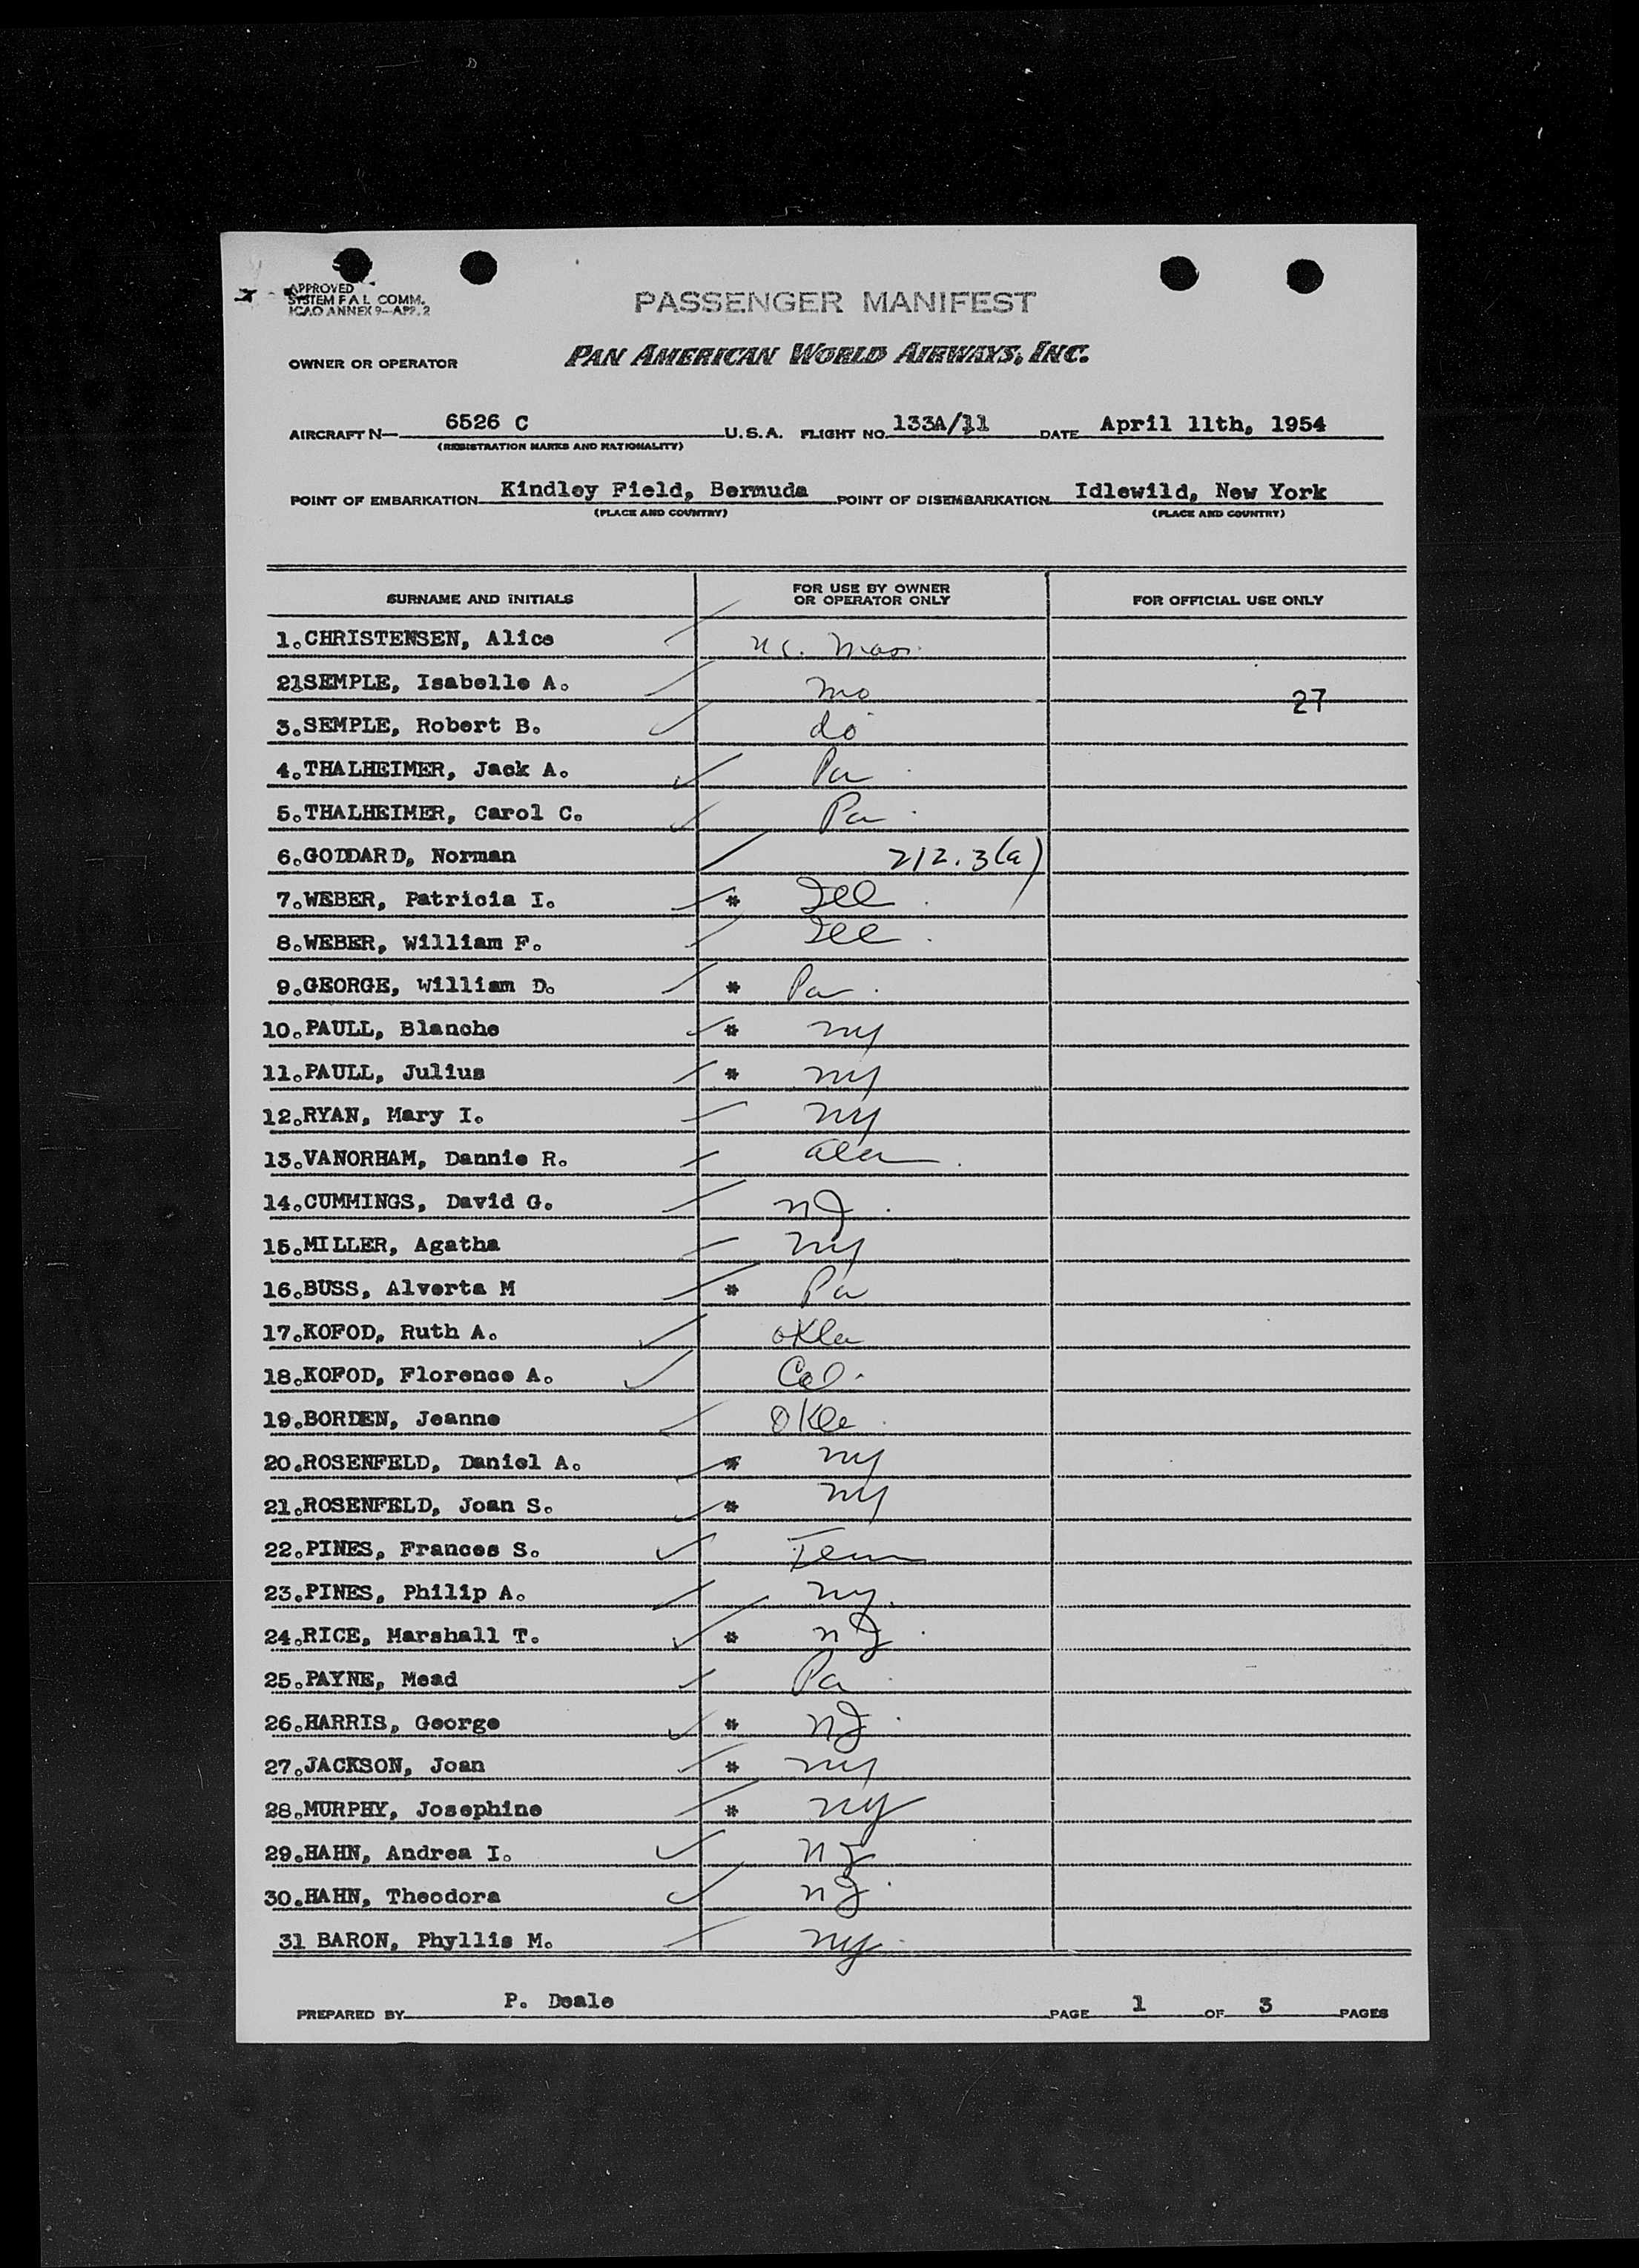 APPROVED
SYSTEM F A L COMM.
ICAO ANNEX 9-APP. 2
PASSENGER MANIFEST
OWNER OR OPERATOR PAN AMERICAN WORLD AIRWAYS, INC.
AIRCRAFT N- 6526 C U.S.A. FLIGHT NO. 133A/11 DATE April 11th, 1954
(REGISTRATION MARKS AND NATIONALITY)
POINT OF EMBARKATION Kindley Field, Bermuda POINT OF DISEMBARKATION Idlewild, New York
(PLACE AND COUNTRY) (PLACE AND COUNTRY)
SURNAME AND INITIALS FOR USE BY OWNER OR OPERATOR ONLY FOR OFFICIAL USE ONLY
1.CHRISTENSEN, Alice
2.SEMPLE, Isabelle A. Mo 27
3.SEMPLE, Robert B. do
4.THALHEIMER, Jack A. Pa
5.THALHEIMER, Carol C. Pa
6.GODDARD, Norman 212.3(a)
7.WEBER, Patricia I. * Ill
8.WEBER, William F. Ill
9.GEORGE, William D. * Pa
10.PAULL, Blanche * NY
11.PAULL, Julius * NY
12.RYAN, Mary I. NY
13.VANORHAM, Dannie R. Ala
14.CUMMINGS, David G. NJ
15.MILLER, Agatha NY
16.BUSS, Alverta M * Pa
17.KOFOD, Ruth A. Okla
18.KOFOD, Florence A. Cal.
19.BORDEN, Jeanne Okla
20.ROSENFELD, Daniel A. * NY
21.ROSENFELD, Joan S. * NY
22.PINES, Frances S. Tenn
23.PINES, Philip A. NY.
24.RICE, Marshall T. * NJ
25.PAYNE, Mead Pa
26.HARRIS, George * NJ
27.JACKSON, Joan * NY
28.MURPHY, Josephine * NY
29.HAHN, Andrea I. NJ
30.HAHN, Theodora NJ
31 BARON, Phyllis M. NY
PREPARED BY P. Deale PAGE 1 OF 3 PAGES